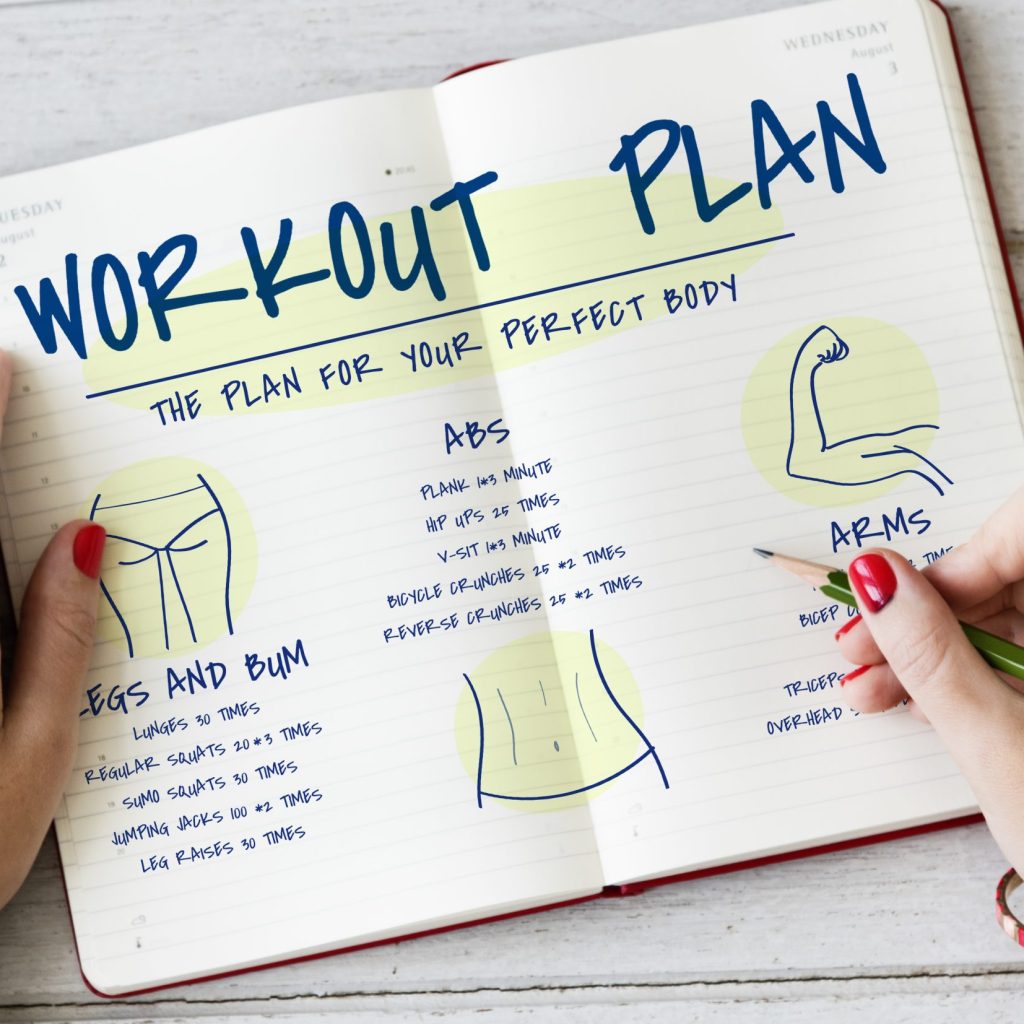 TUESDAY
August
2
WEDNESDAY
August
3
20:45
WORKOUT PLAN
THE PLAN FOR YOUR PERFECT BODY
LEGS AND BUM
LUNGES 30 TIMES
REGULAR SQUATS 20*3 TIMES
SUMO SQUATS 30 TIMES
JUMPING JACKS 100 *2 TIMES
LEG RAISES 30 TIMES
ABS
PLANK 1*3 MINUTE
HIP UPS 25 TIMES
V-SIT 1*3 MINUTE
BICYCLE CRUNCHES 25 *2 TIMES
REVERSE CRUNCHES 25 *2 TIMES
ARMS
BICEP
TRICEPS
OVERHEAD